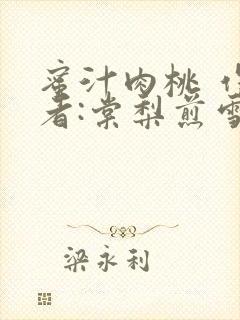 蜜汁肉桃 作
者:棠梨煎雪
梁永利